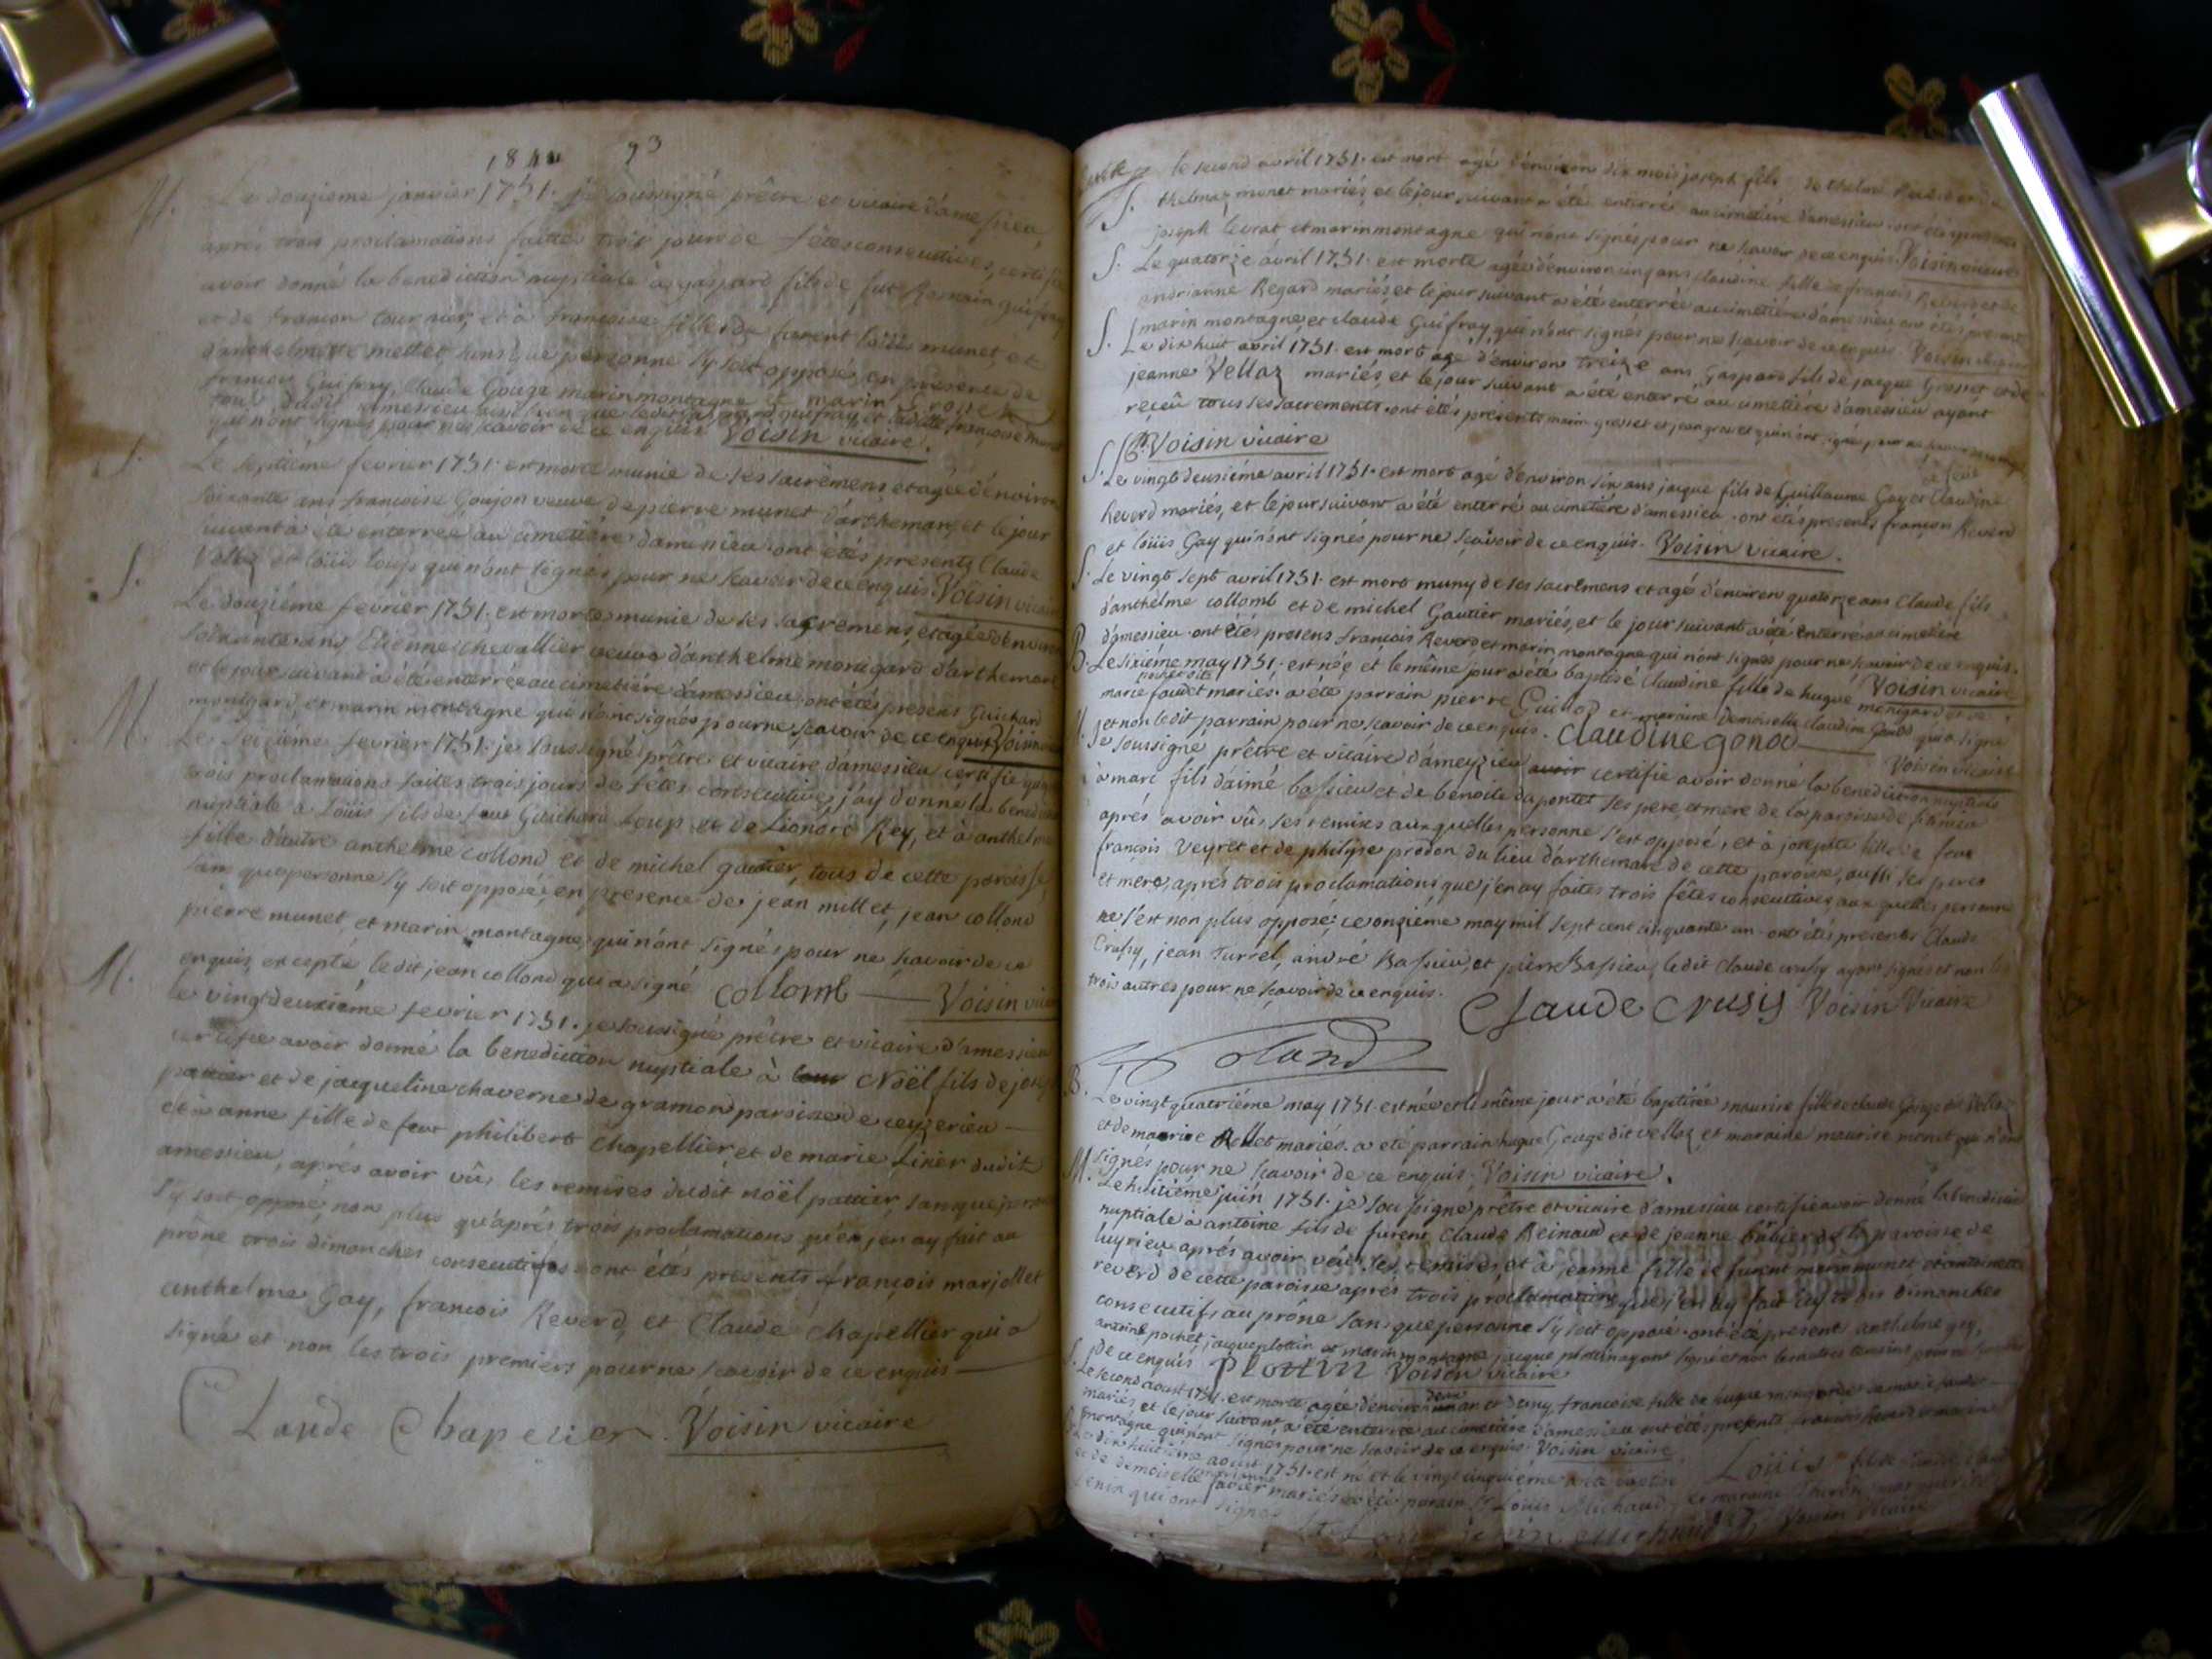 93
M. Le douzieme janvier 1751. je soussigné prêtre et vicaire d'amessieu,
aprés trois proclamations faittes trois jours de fêtes consecutives, certifie
avoir donné la benediction nuptiale à gaspard fils de fut Romain guifray
et de françon tournier, et à francoise fille de furent loüis munet, et
d'anthelmette mettet, sans que personne s'y soit opposé, en présence de
françois Guifray, Claude Gouge marin montagne et marin
tous dudit amessieu aussi bien que ledit gaspard guifray et ladite francoise munet
qui n'ont signés pour ne sçavoir de ce enquis Voisin vicaire.
S. Le septiéme fevrier 1751. est morte munie de ses sacremens et agée d'environ
soixante ans francoise Goujon veuve de pierre munet d'arthemare, et le jour
suivant a été enterrée au cimetiére d'amessieu ont étés presents Claude
Vellaz et loüis loup qui n'ont signés pour ne scavoir de ce enquis. Voisin vicaire
S. Le douziéme fevrier 1751. est morte munie de ses sacremens, et agée d'environ
soixante ans Etiennette chevallier veuve d'anthelme monigard d'arthemare
et le jour suivant a été enterrée au cimetiére d'amessieu, ont étés présens Guichard
monigard, et marin montagne qui n'ont signés pour ne scavoir de ce enquis Voisin
M. Le seizieme fevrier 1751. je soussigné prêtre et vicaire d'amessieu certifie qu'
trois proclamations faites trois jours de fêtes consecutives j'ay donné la benediction
nuptiale à Loüis fils de feut Guichard Loup et de Lionore Rey, et à anthelme
fille d'autre anthelme collond et de michel gautier, tous de cette paroisse
sans que personne s'y soit opposé, en présence de jean millet, jean collond
pierre munet, et marin montagne, qui n'ont signés pour ne sçavoir de ce
enquis, excepté ledit jean collond qui a signé collomb — Voisin vicaire
M. Le vingt deuxiéme fevrier 1751. je soussigné prêtre et vicaire d'amessieu
certifie avoir donné la benediction nuptiale à Noël fils de joseph
pattier et de jacqueline chaverne de gramon paroisse de ceyzerieu —
et à anne fille de feut philibert Chapellier et de marie Linier dudit
amessieu, aprés avoir vû, les remises dudit noël pattier, sans que personne
s'y soit opposé, non plus qu'aprés trois proclamations qu'en j'en ay fait au
prône trois dimanches consecutifs ont étés présents françois marjollet
anthelme Gay, francois Reverd, et Claude chapellier qui a
signé et non les trois premiers pour ne scavoir de ce enquis —
Claude Chapelier. Voisin vicaire
S. le second avril 1751. est mort agé d'environ dix mois joseph fils de thelme
thelmaz monet mariés, et le jour suivant a été enterré au cimetiére d'amessieu ont étés présents
joseph levrat et marin montagne qui n'ont signés pour ne scavoir de ce enquis. Voisin vicaire
S. Le quatorze avril 1751. est morte agée d'environ cinq ans claudine fille de francois Reverd et de
andrianne Regard mariés, et le jour suivant a été enterrée au cimetiére d'amessieu ont étés présens
marin montagne, et claude Guifray, qui n'ont signés pour ne scavoir de ce enquis. Voisin vicaire
S. Le dix huit avril 1751. est mort agé d'environ treize ans Gaspard fils de jacque Grosset et de
jeanne Vellaz mariés, et le jour suivant a été enterré au cimetiére d'amessieu ayant
reçeu tous ses sacrements ont étés présents marin grosset et jean grosset qui n'ont signé pour ne scavoir
Voisin vicaire
S. Le vingt deusiéme avril 1751. est mort agé d'environ six ans jacque fils de Guillaume Gay et Claudine
Reverd mariés, et le jour suivant a été enterré au cimetiére d'amessieu. ont étés presents françois Reverd
et loüis Gay qui n'ont signés pour ne scavoir de ce enquis. Voisin vicaire.
S. Le vingt sept avril 1751. est mort muny de ses sacremens et agé d'environ quatorze ans Claude fils
d'anthelme collomb et de michel Gautier mariés, et le jour suivant a été enterré au cimetiére
d'amessieu. ont étés présens francois Reverd et marin montagne qui n'ont signés pour ne scavoir de ce enquis.
Voisin vicaire
B. Le sixiéme may 1751. est née et le même jour a été baptisé Claudine fille de hugue monigard et de
marie faudet mariés. a été parrain pierre Guillod et maraine Demoiselle claudine Gonod qui a signé
et non ledit parrain pour ne scavoir de ce enquis. Claudine gonod Voisin vicaire
M. je soussigné prêtre et vicaire d'ameyzieu certifie avoir donné la benediction nuptiale
à marc fils d'aimé bassieu et de benoite dupontet ses pere, et mere de la paroisse de
aprés avoir vû, ses remises aux quelles personne s'est opposé, et à josephte fille de feut
françois Veyret et de philipe prodon du lieu d'arthemare de cette paroisse, aussi ses peres
et mere, aprés trois proclamations que j'en ay faites trois fêtes consecutives aux quelles personne
ne s'est non plus opposé: ce onziéme may mil sept cent cinquante un. ont étés presents Claude
Crussy, jean Turrel, andré Bassieu, et pierre Bassieu, ledit Claude crussy ayant signés et non les
trois autres pour ne scavoir de ce enquis. Claude Crusiy Voisin Vicaire
B. Le vingt quatriéme may 1751. est née et le même jour a été baptisée maurise fille de claude Gouge dit Vellaz
et de maurise Rellet mariés. a été parrain hugue Gouge dit vellaz et maraine maurise monet qui n'ont
signés pour ne scavoir de ce enquis. Voisin vicaire.
M. Le huitiéme juin 1751. je soussigné prêtre et vicaire d'amessieu certifie avoir donné la benediction
nuptiale à antoine fils de furent Claude Reinaud et de jeanne babier de la paroisse de
luyrieu aprés avoir vëu, les remises, et à jeanne fille de furent marin munet et antoinette
reverd de cette paroisse aprés trois proclamations que j'en ay fait cy trois dimanches
consecutifs au prône sans que personne s'y soit opposé. ont été présent anthelme gay,
antoine pochet, jacque plottin et marin montagne, jacque plottin ayant signé et non les autres temoins pour ne scavoir
de ce enquis Plottin Voisin vicaire
S. Le second aoust 1751. est morte agée d'environ deux ans francoise fille de hugue monigard et de marie faudet
mariés et le jour suivant, a été enterrée au cimetiére d'amessieu ont étés presents francois Reverd et marin
montagne qui n'ont signés pour ne scavoir de ce enquis. Voisin vicaire
B. Le dix huitiéme aoust 1751. est né et le vingt cinquiéme a été baptisé Loüis fils
et de demoiselle favier mariés a été parrain Sr. Loüis Michaud, et maraine
qui ont signés
Voisin vicaire